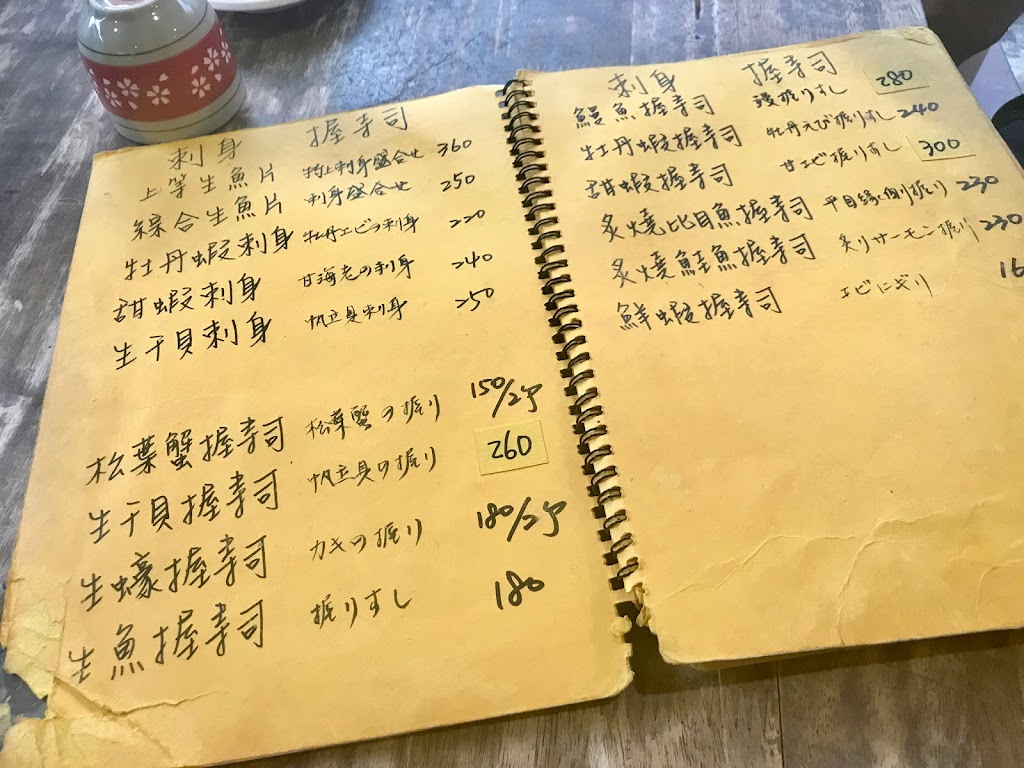 刺身 握寿司
上等生魚片 特上刺身盛合せ 360
綜合生魚片 刺身盛合せ 250
牡丹蝦刺身 牡丹エビの刺身 220
甜蝦刺身 甘海老の刺身 240
生干貝刺身 帆立貝刺身 250
松葉蟹握寿司 松葉蟹の握り 150/2个
生干貝握寿司 帆立貝の握り 260
生蠔握寿司 カキの握り 180/2个
生魚握寿司 握りすし 180
刺身 握寿司
鰻魚握寿司 握りすし 280
牡丹蝦握寿司 牡丹えび握りすし 240
甜蝦握寿司 甘エビ握りすし 300
炙燒比目魚握寿司 平目縁側握り 230
炙燒鮭魚握寿司 炙りサーモン握り 230
鮮蝦握寿司 エビにぎり 16